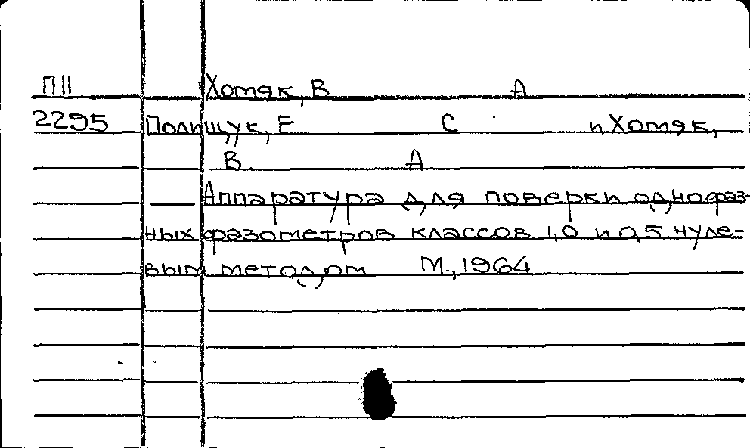 ПII Хомяк, В А
2295 Полищук, Е С и Хомяк,
В А
Аппаратура для поверки однофаз-
ных фазометров классов 1,0 и 0,5 нуле-
вым методом М., 1964